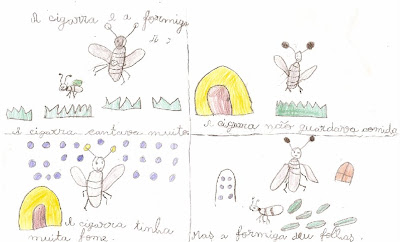 A cigarra e a formiga
A cigarra cantava muito
A cigarra não guardava comida
A cigarra tinha
muita fome.
Mas a formiga deu folhas.